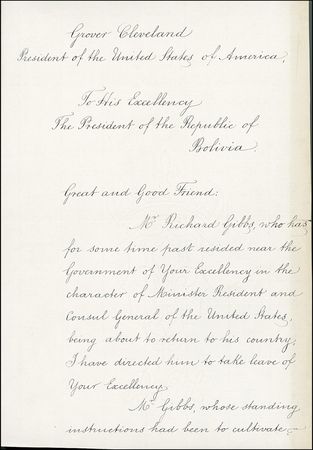 Grover Cleveland
President of the United States of America,
To His Excellency
The President of the Republic of
Bolivia.
Great and Good Friend:
Mr. Richard Gibbs, who has
for some time past resided near the
Government of Your Excellency in the
character of Minister Resident and
Consul General of the United States,
being about to return to his country,
I have directed him to take leave of
Your Excellency.
Mr. Gibbs, whose standing
instructions had been to cultivate